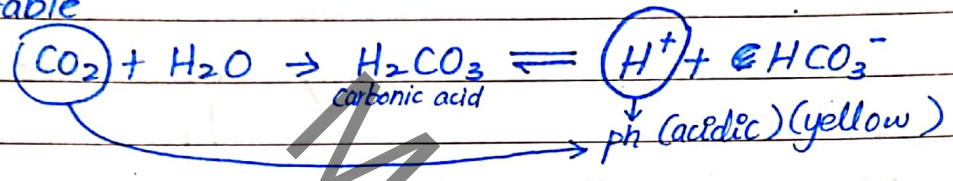 able
CO₂ + H₂O → H₂CO₃ ⇌ H⁺ + HCO₃⁻
carbonic acid
ph (acidic) (yellow)